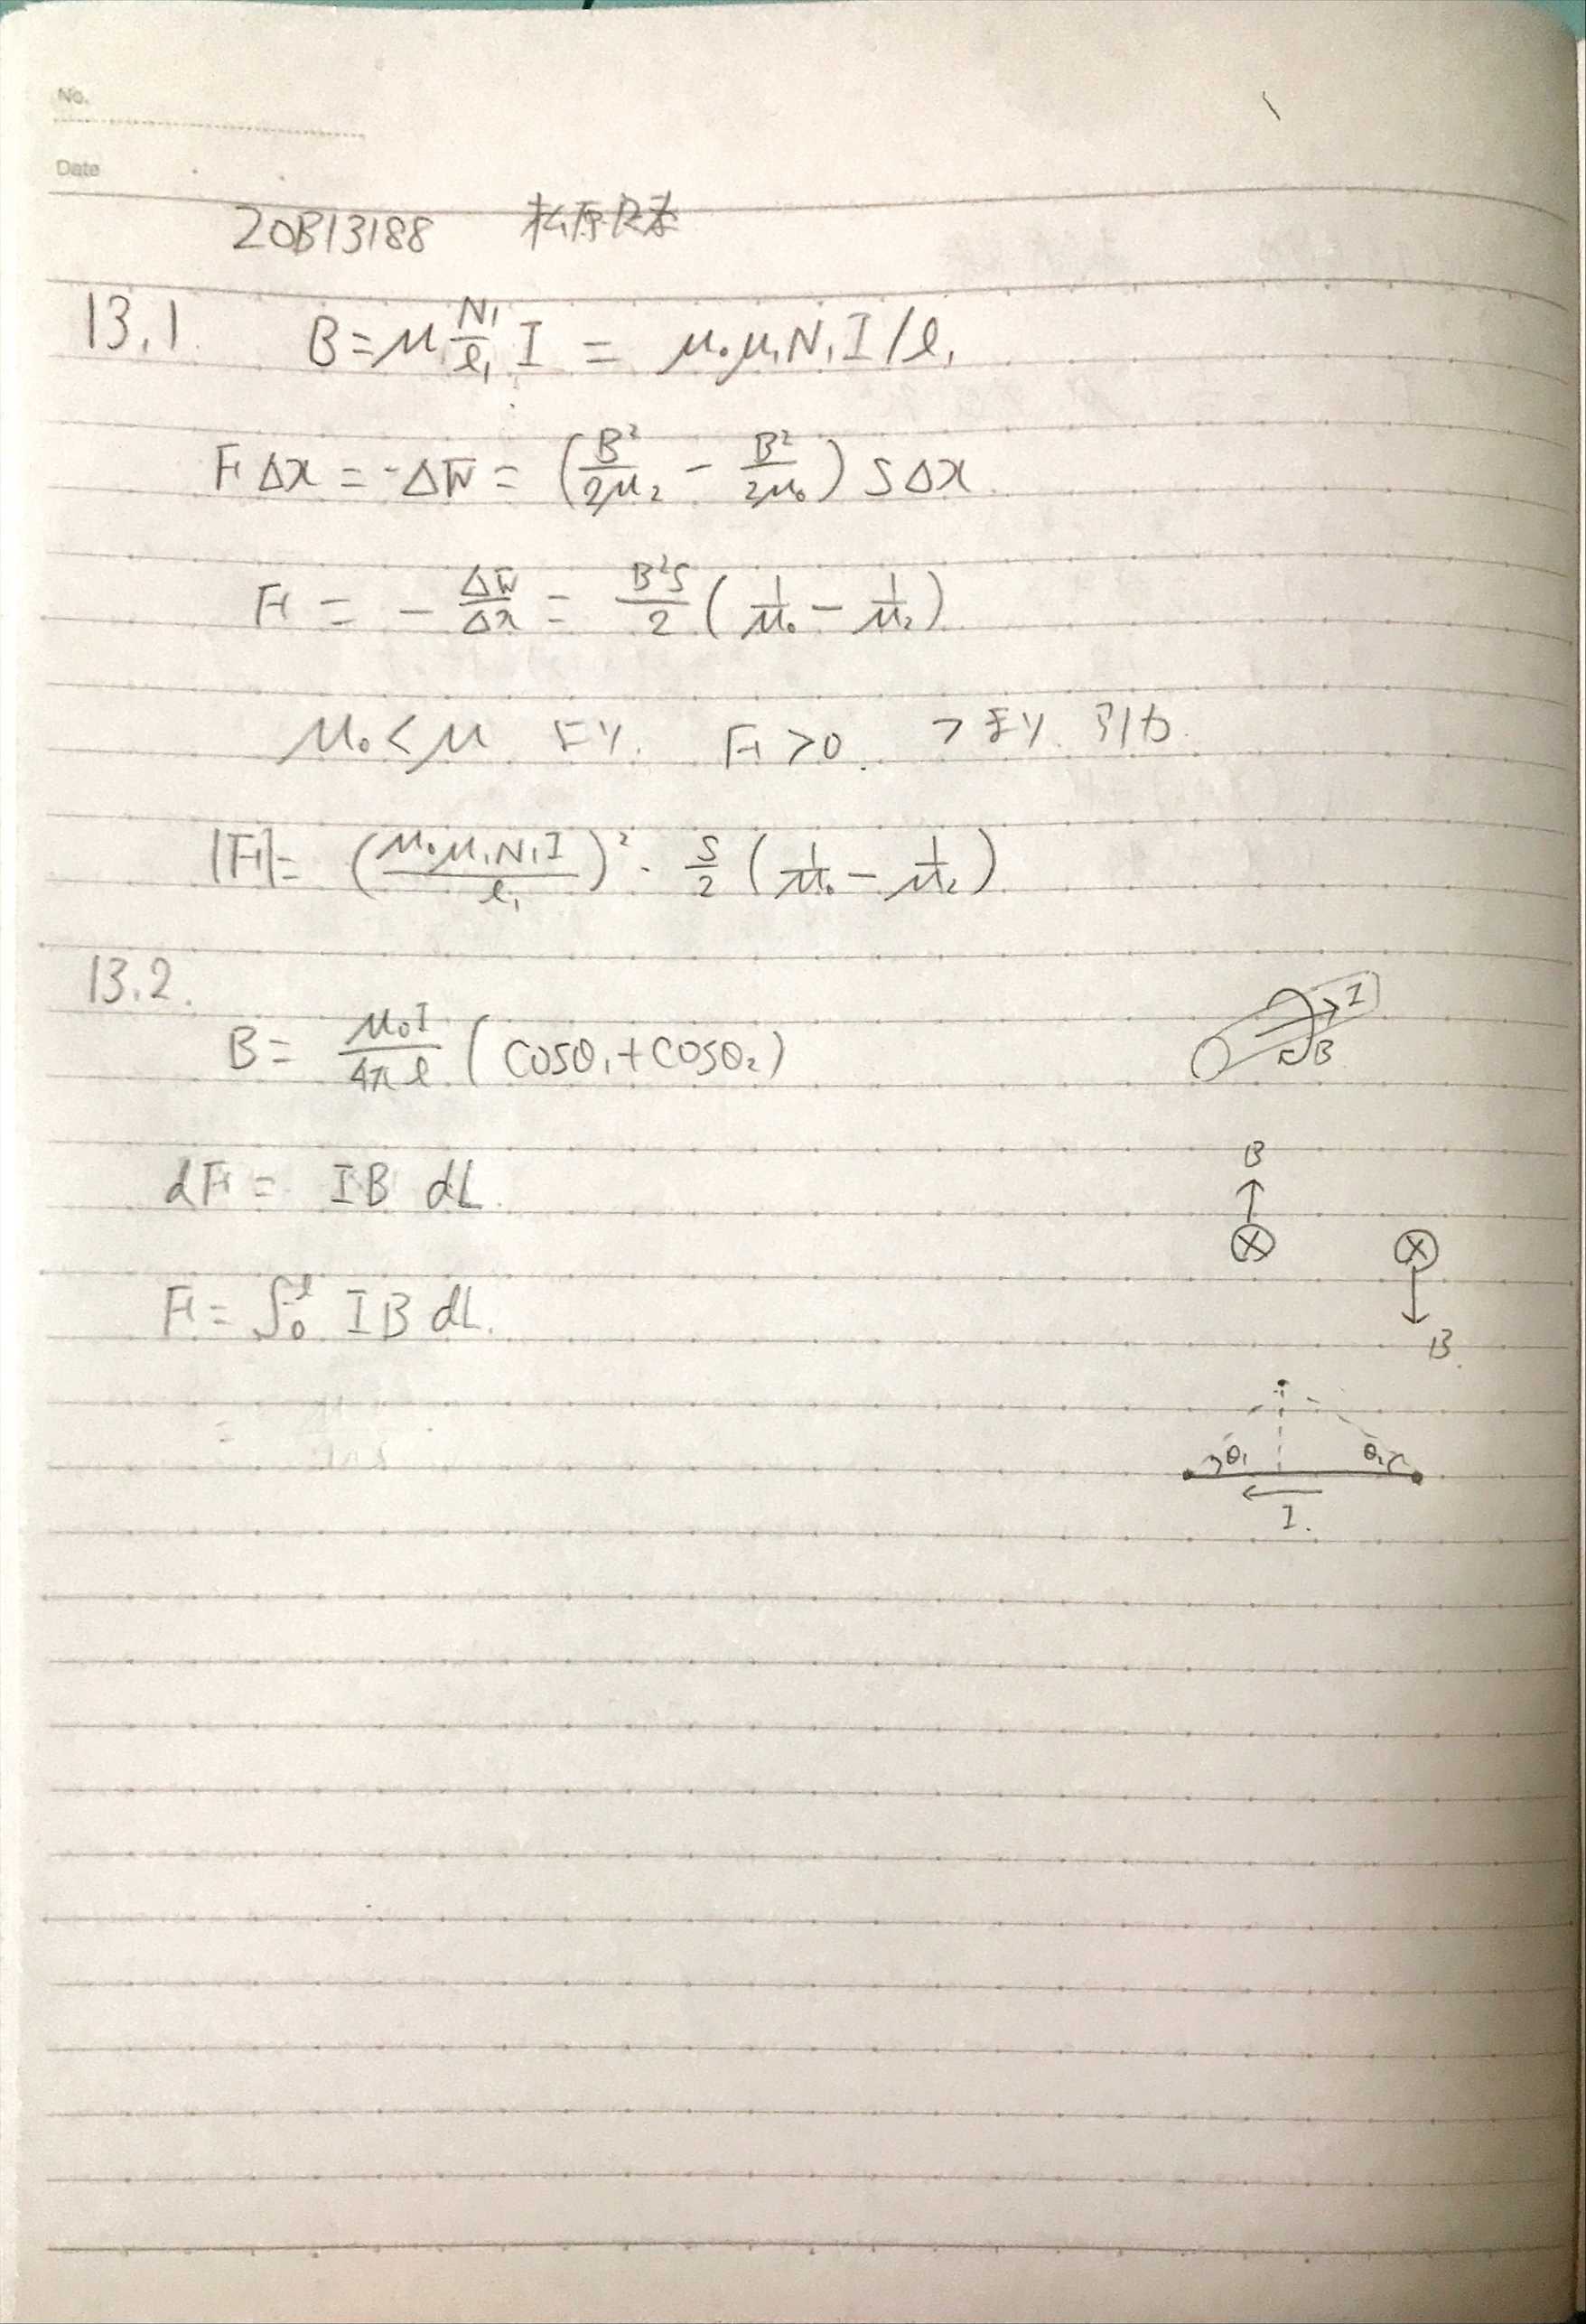 No.
Date
20B13188 松原良太
13.1. B=μ₁ N₁/ℓ₁ I = μ₀μ₁N₁I/ℓ₁
FΔx = -ΔW = (B²/2μ₂ - B²/2μ₀) SΔx
F = - ΔW/Δx = B²S/2 (1/μ₀ - 1/μ₂)
μ₀<μ より. F>0. つまり 引力.
|F|= (μ₀μ₁N₁I/ℓ₁)² · S/2 (1/μ₀ - 1/μ₂)
13.2.
B= μ₀I/4πℓ (cosθ₁+cosθ₂)
I
B
dF = IB dL.
B
F= ∫₀ˡ IB dL.
B
θ₁ θ₂
I.